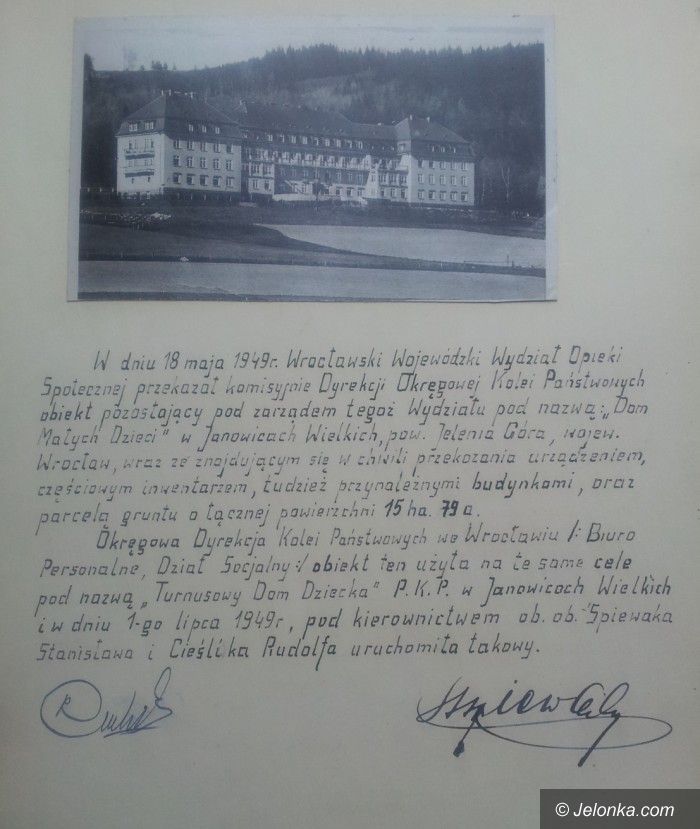 W dniu 18 maja 1949r. Wrocławski Wojewódzki Wydział Opieki
Społecznej przekazał komisyjnie Dyrekcji Okręgowej Kolei Państwowych
obiekt pozostający pod zarządem tegoż Wydziału pod nazwą: „Dom
Małych Dzieci" w Janowicach Wielkich, pow. Jelenia Góra, wojew.
Wrocław, wraz ze znajdującym się w chwili przekazania urządzeniem,
częściowym inwentarzem, tudzież przynależnymi budynkami, oraz
parcelą gruntu o łącznej powierzchni 15 ha. 79 a.
Okręgowa Dyrekcja Kolei Państwowych we Wrocławiu /: Biuro
Personalne, Dział Socjalny:/ obiekt ten użyła na te same cele
pod nazwą „Turnusowy Dom Dziecka" P.K.P. w Janowicach Wielkich
i w dniu 1-go lipca 1949r, pod kierownictwem ob. ob. Spiewaka
Stanisława i Cieślika Rudolfa uruchomiła takowy.
© Jelonka.com